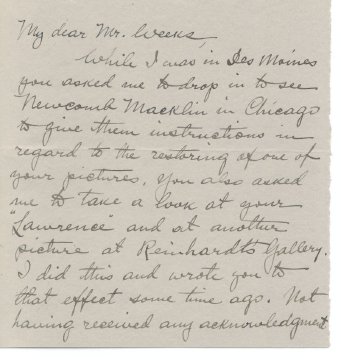 My dear Mr. Weeks,
While I was in Des Moines
you asked me to drop in to see
Newcomb Macklin in Chicago
to give them instructions in
regard to the restoring of one of
your pictures, you also asked
me to take a look at your
"Lawrence" and at another
picture at Reinhardt's Gallery.
I did this and wrote you to
that effect some time ago. Not
having received any acknowledgment